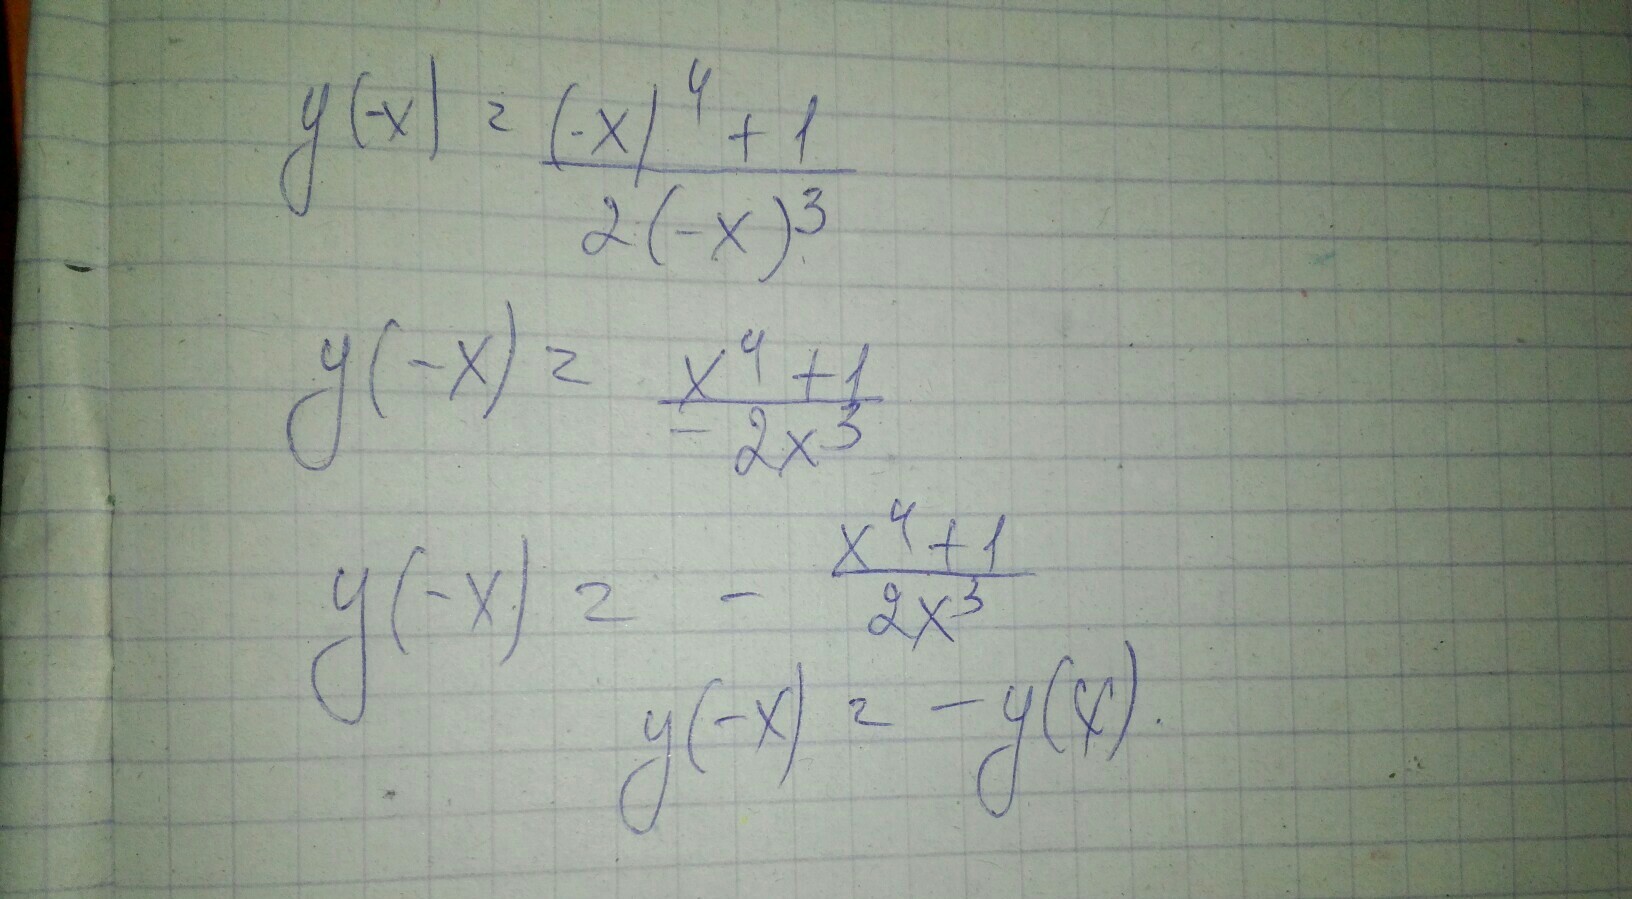 y(-x) = ((-x)^4 + 1)/(2(-x)^3)
y(-x) = (x^4 + 1)/(-2x^3)
y(-x) = - (x^4 + 1)/(2x^3)
y(-x) = -y(x).